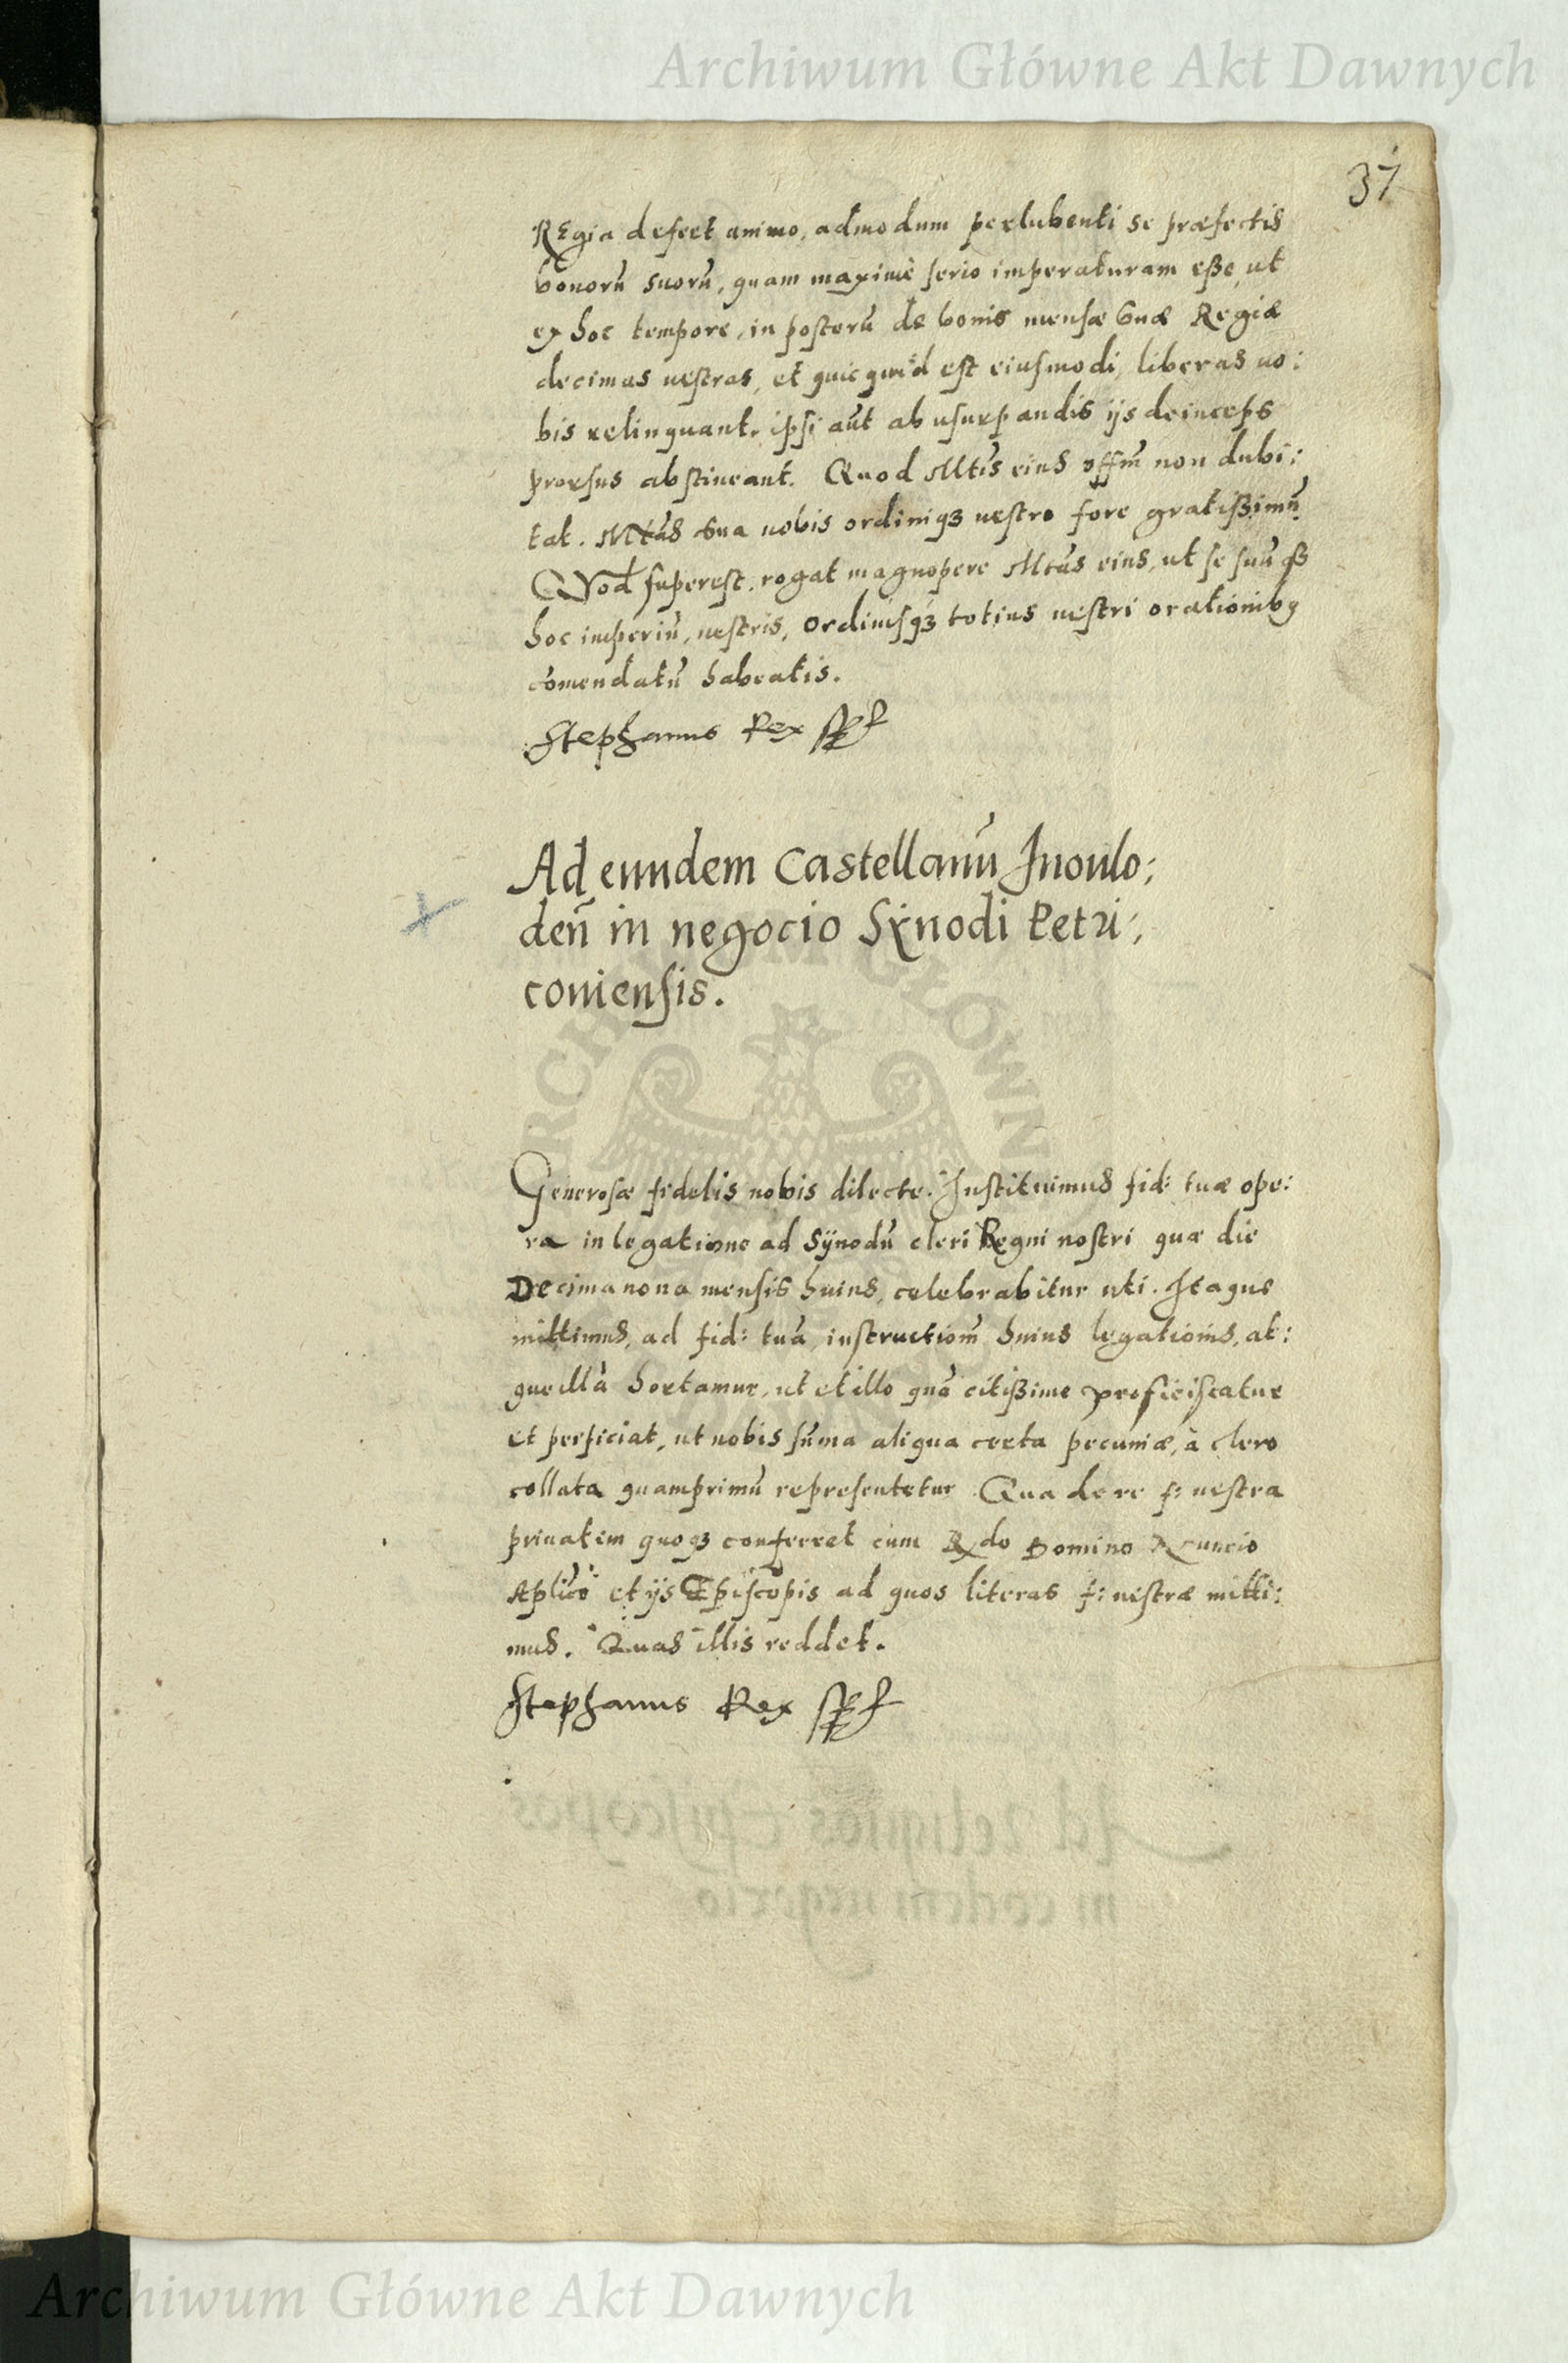 Archiwum Główne Akt Dawnych
37
REgia deferet animo, admodum perlubenti se præfectis
bonorũ suorũ, quam maximè serio imperaturam eße, ut
ex hoc tempore, in posterũ de bonis mensæ suæ Regiæ
decimas vestras, et quicquid est eiusmodi, liberas vo:
bis relinquant, ipsi aũt ab usurpandis ijs deinceps
prorsus abstineant. Quod Mtis eius offm non dubi:
tat. Mtas sua vobis ordiniqꝫ vestro fore gratißimũ
QVod superest, rogat magnopere Mtas eius, ut se suũqꝫ
hoc imperiũ, vestris, ordinisqꝫ totius vestri orationibꝰ
com̃endatũ habeatis.
Stephanus Rex sspt
Ad eundem Castellanũ Inoulo:
deñ in negocio Sÿnodi Petri:
couiensis.
ARCHIWUM GŁÓWNE
Generosæ fidelis nobis dilecte. Instituimus fid: tuæ ope:
ra in legatione ad Sÿnodũ cleri Regni nostri quæ die
Decima nona mensis huius, celebrabitur uti. Itaque
mittimus, ad fid: tuã, instructiom̃ huius legationis, at:
que illã hortamur, ut et illo quã citißime proficiscatur
et perficiat, ut nobis sum̃a aliqua certa pecuniæ, à clero
collata quamprimũ repręsentetur Qua de re f: vestra
privatim quoqꝫ conferret cum Rdo Domino Nuncio
Aplico et ijs Episcopis ad quos literas f: vestræ mitti:
mus. Quas illis reddet.
Stephanus Rex sspt
Archiwum Główne Akt Dawnych